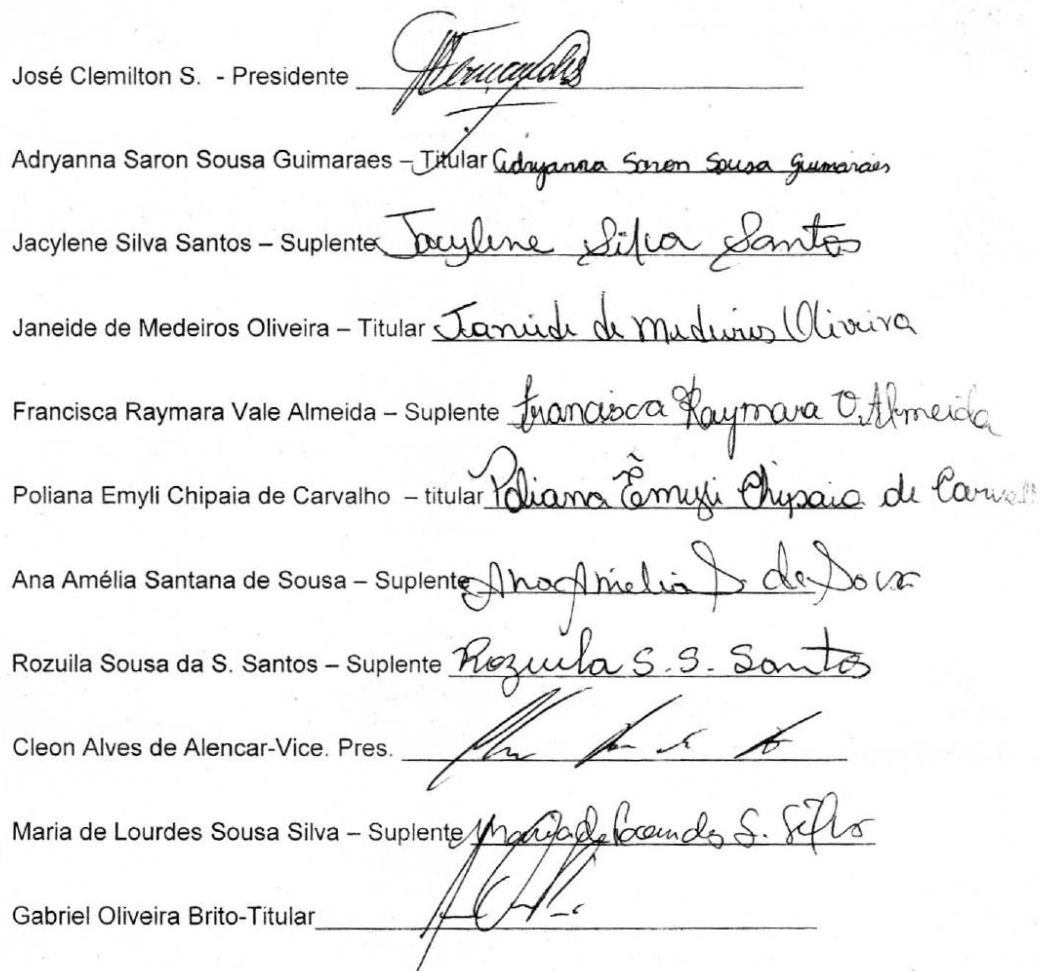 José Clemilton S. - Presidente Fernandes
Adryanna Saron Sousa Guimaraes – Titular Adryanna Saron Sousa Guimarães
Jacylene Silva Santos – Suplente Jacylene Silva Santos
Janeide de Medeiros Oliveira – Titular Janeide de Medeiros Oliveira
Francisca Raymara Vale Almeida – Suplente Francisca Raymara V. Almeida
Poliana Emyli Chipaia de Carvalho – titular Poliana Emyli Chipaia de
Ana Amélia Santana de Sousa – Suplente Ana Amelia S de Sousa
Rozuila Sousa da S. Santos – Suplente Rozuila S. S. Santos
Cleon Alves de Alencar-Vice. Pres.
Maria de Lourdes Sousa Silva – Suplente Maria de Lourdes S. Silva
Gabriel Oliveira Brito-Titular